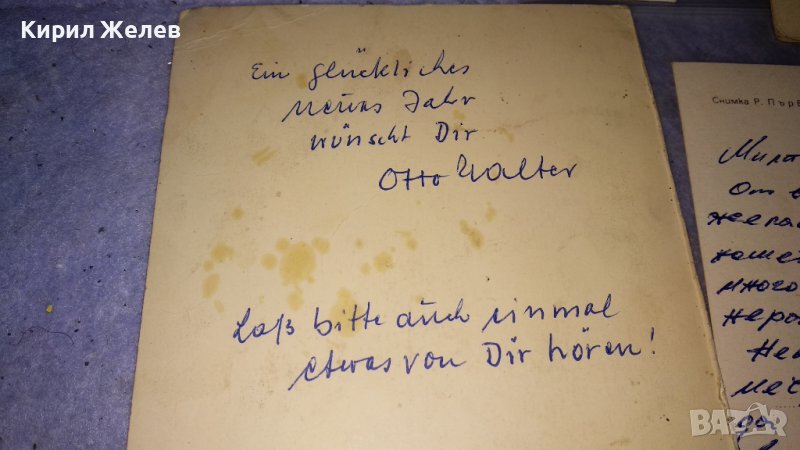 Кирил Желев
Ein glückliches
neues Jahr
wünscht Dir
Otto Walter
Laß bitte auch einmal
etwas von Dir hören!
Снимка Р. Пър
От
много
BAZAR